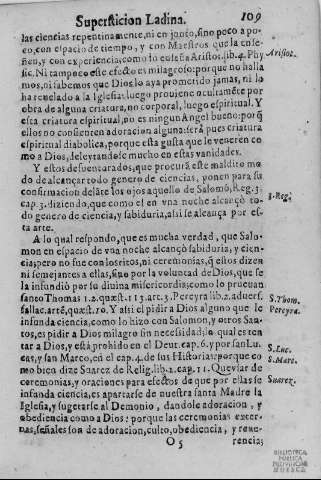 Superſticion Ladina. 109
las ciencias repentinamente, ni en junto, ſino poco a po-
co, con eſpacio de tiempo, y con Maeſtros que la enſe-
ñen, y con experiencia; como lo enſeña Ariſtot. lib. 4. Phy
Ariſtot.
ſic. Ni tampoco eſte efecto es milagroſo: porque no halla
mos, ni ſabemos que Dios lo aya prometido jamas, ni lo
ha reuelado a la Igleſia: luego prouiene ocultamẽte por
obra de alguna criatura, no corporal, luego eſpiritual. Y
eſta criatura eſpiritual, no es ningun Angel bueno: porq̃
ellos no conſienten adoracion alguna: ſerà pues criatura
eſpiritual diabolica, porque eſta guſta que le veneren co
mo a Dios, deleytandoſe mucho en eſtas vanidades.
Y eſtos deſuenturados, que procurã eſte maldito mo
do de alcançar todo genero de ciencias, ponen para ſu
confirmacion delãte los ojos aquello de Salomõ, Reg. 3.
3. Reg.
cap. 3. diziendo, que como el en vna noche alcançò to-
do genero de ciencia, y ſabiduria, aſsi ſe alcança por eſ-
ta arte.
A lo qual reſpondo, que es mucha verdad, que Salo-
mon en eſpacio de vna noche alcançò ſabiduria, y cien-
cia; pero no fue con los ritos, ni ceremonias, q̃ ellos dizen
ni ſemejantes a ellas, ſino por la voluntad de Dios, que ſe
la infundiò por ſu diuina miſericordia; como lo prueuan
ſanto Thomas 1. 2. quæſt. 113. art. 3. Pereyra lib. 2. aduerſ.
S. Thom.
fallac. artẽ, quæſt. 10. Y aſsi el pidir a Dios alguno que le
Pereyra.
infunda ciencia, como lo hizo con Salomon, y otros San-
tos, es pidir a Dios milagro ſin neceſsidad; lo qual es ten
tar a Dios, y eſtà prohibido en el Deut. cap. 6. y por ſan Lu-
S. Luc.
cas, y ſan Marco, en el cap. 4. de ſus Hiſtorias: porque co
S. Marc.
mo bien dize Suarez de Relig. lib. 2. cap. 11. Que vſar de
ceremonias, y oraciones para efectos de que por ellas ſe
Suarez.
infunda ciencia, es apartarſe de nueſtra ſanta Madre la
Igleſia, y ſugetarſe al Demonio, dandole adoracion, y
obediencia como a Dios: porque las ceremonias exter-
nas, ſeñales ſon de adoracion, culto, obediencia, y reue-
O 5 rencia;
BIBLIOTECA
PUBLICA
PROVINCIAL
HUESCA